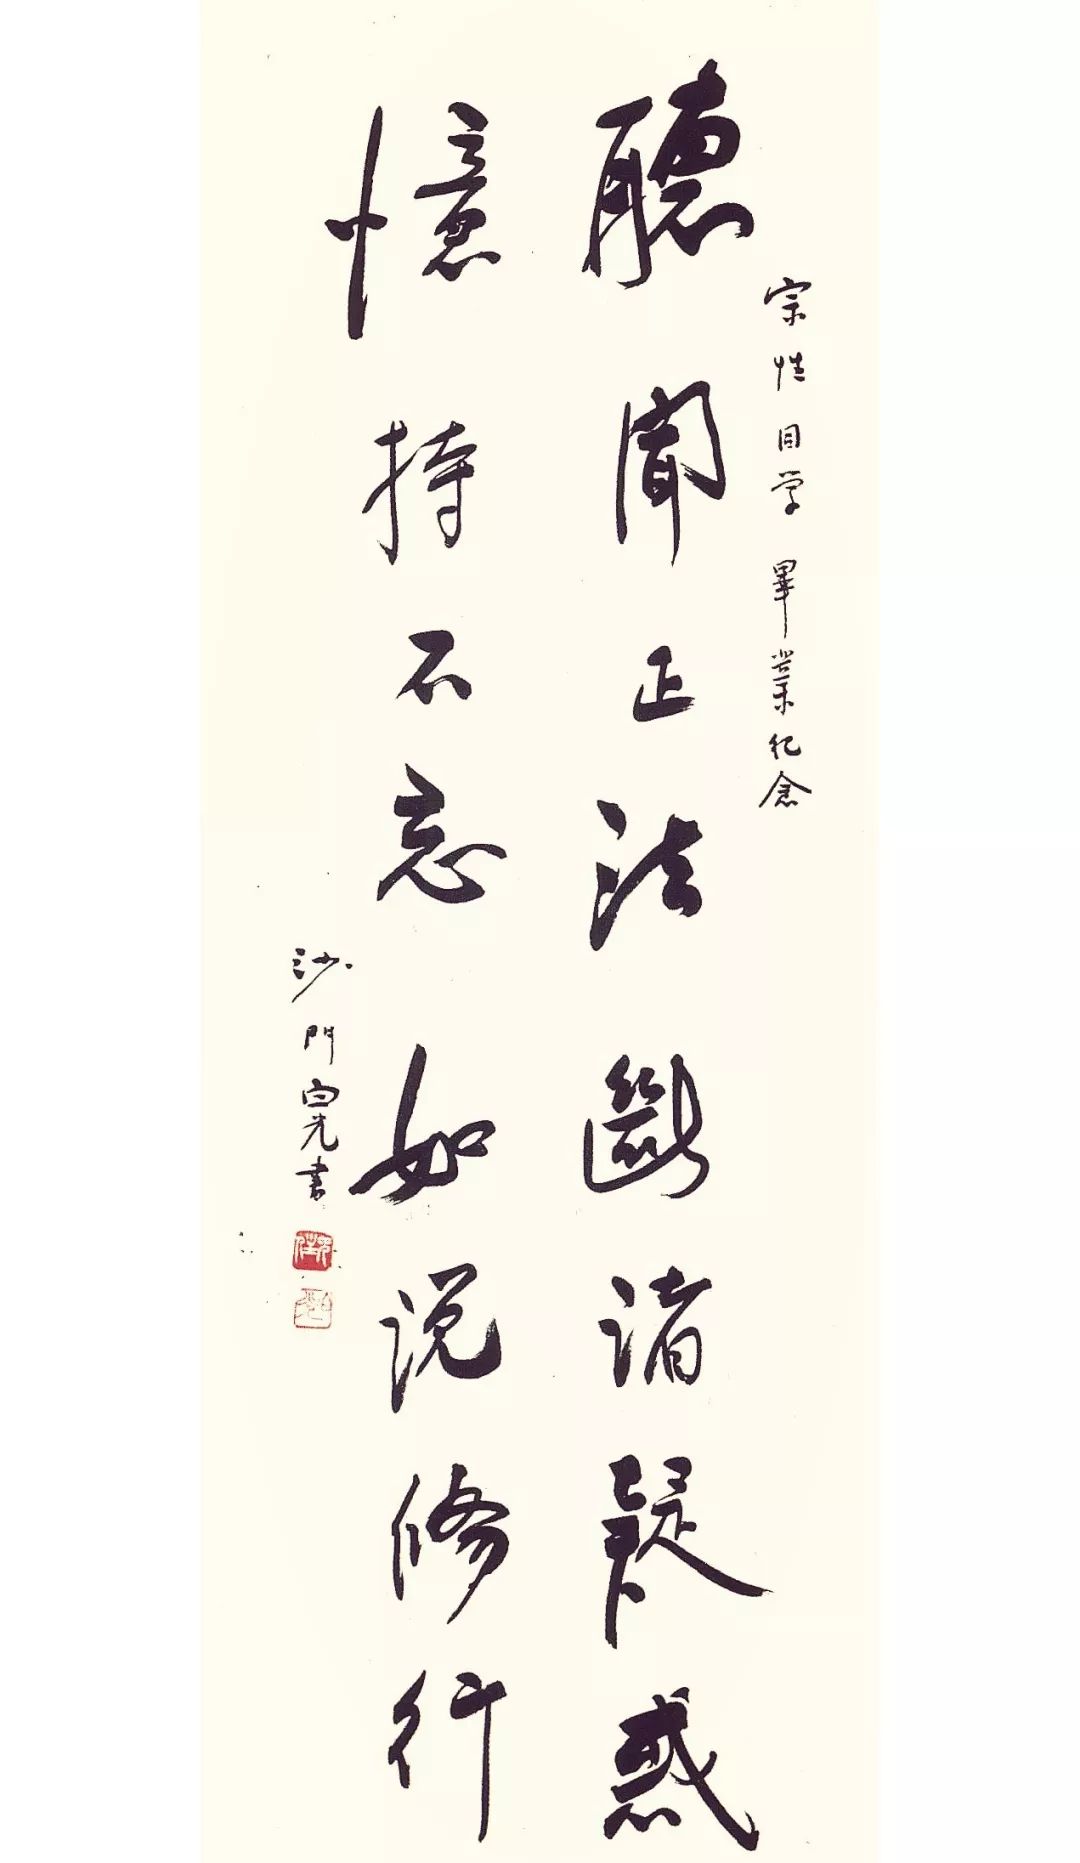 宗性同学畢業纪念
聽聞正法斷諸疑惑
憶持不忘如说修行
沙門白光書